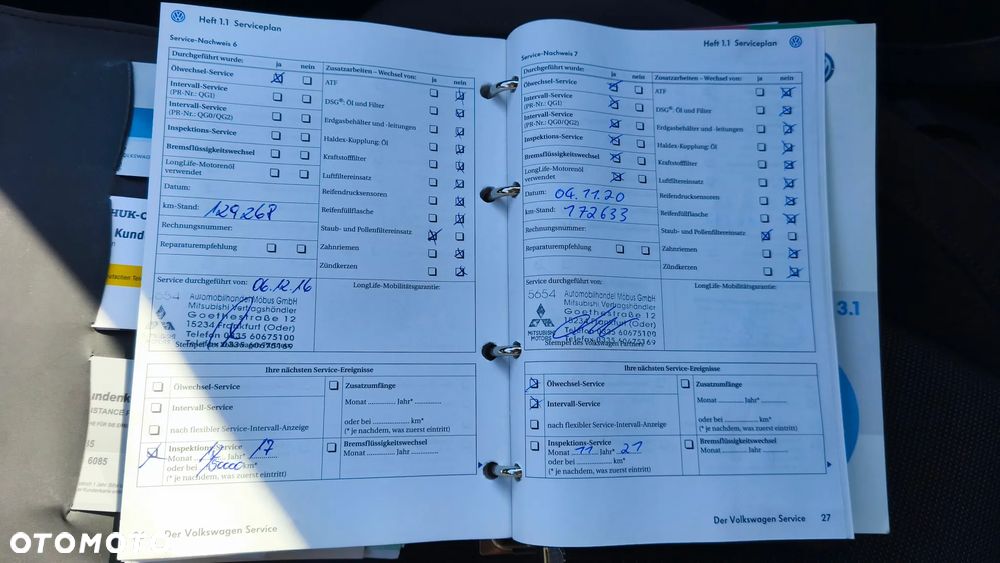 Heft 1.1 Serviceplan
Service-Nachweis 6
Durchgeführt wurde: ja nein
Ölwechsel-Service
Intervall-Service
(PR-Nr.: QG1)
Intervall-Service
(PR-Nr.: QG0/QG2)
Inspektions-Service
Bremsflüssigkeitswechsel
LongLife-Motorenöl
verwendet
Datum:
km-Stand: 129268
Rechnungsnummer:
Reparaturempfehlung
Zusatzarbeiten – Wechsel von: ja nein
ATF
DSG®: Öl und Filter
Erdgasbehälter und -leitungen
Haldex-Kupplung: Öl
Kraftstofffilter
Luftfiltereinsatz
Reifendrucksensoren
Reifenfüllflasche
Staub- und Pollenfiltereinsatz
Zahnriemen
Zündkerzen
Service durchgeführt von: 06.12.16
LongLife-Mobilitätsgarantie:
5654 Automobilhandel Möbus GmbH
Mitsubishi Vertragshändler
Goethestraße 12
15234 Frankfurt (Oder)
Telefon 0335 60675100
Telefax 0335 60675169
Ihre nächsten Service-Ereignisse
Ölwechsel-Service
Intervall-Service
nach flexibler Service-Intervall-Anzeige
Inspektions-Service
Monat 12 Jahr* 17
oder bei km*
(* je nachdem, was zuerst eintritt)
Zusatzumfänge
Monat Jahr*
oder bei km*
(* je nachdem, was zuerst eintritt)
Bremsflüssigkeitswechsel
Monat Jahr
Der Volkswagen Service
Heft 1.1 Serviceplan
Service-Nachweis 7
Durchgeführt wurde: ja nein
Ölwechsel-Service
Intervall-Service
(PR-Nr.: QG1)
Intervall-Service
(PR-Nr.: QG0/QG2)
Inspektions-Service
Bremsflüssigkeitswechsel
LongLife-Motorenöl
verwendet
Datum: 04.11.20
km-Stand: 172633
Rechnungsnummer:
Reparaturempfehlung
Zusatzarbeiten – Wechsel von: ja nein
ATF
DSG®: Öl und Filter
Erdgasbehälter und -leitungen
Haldex-Kupplung: Öl
Kraftstofffilter
Luftfiltereinsatz
Reifendrucksensoren
Reifenfüllflasche
Staub- und Pollenfiltereinsatz
Zahnriemen
Zündkerzen
Service durchgeführt von:
LongLife-Mobilitätsgarantie:
5654 Automobilhandel Möbus GmbH
Mitsubishi Vertragshändler
Goethestraße 12
15234 Frankfurt (Oder)
MITSUBISHI Telefon 0335 60675100
MOTORS Telefax 0335 60675169
Stempel des Volkswagen Partners
Ihre nächsten Service-Ereignisse
Ölwechsel-Service
Intervall-Service
nach flexibler Service-Intervall-Anzeige
Inspektions-Service
Monat 11 Jahr* 21
oder bei km*
(* je nachdem, was zuerst eintritt)
Zusatzumfänge
Monat Jahr*
oder bei km*
(* je nachdem, was zuerst eintritt)
Bremsflüssigkeitswechsel
Monat Jahr
Der Volkswagen Service 27
3.1
VOLKSWAG
HUK-C
Kund
6085
OTOMOTO